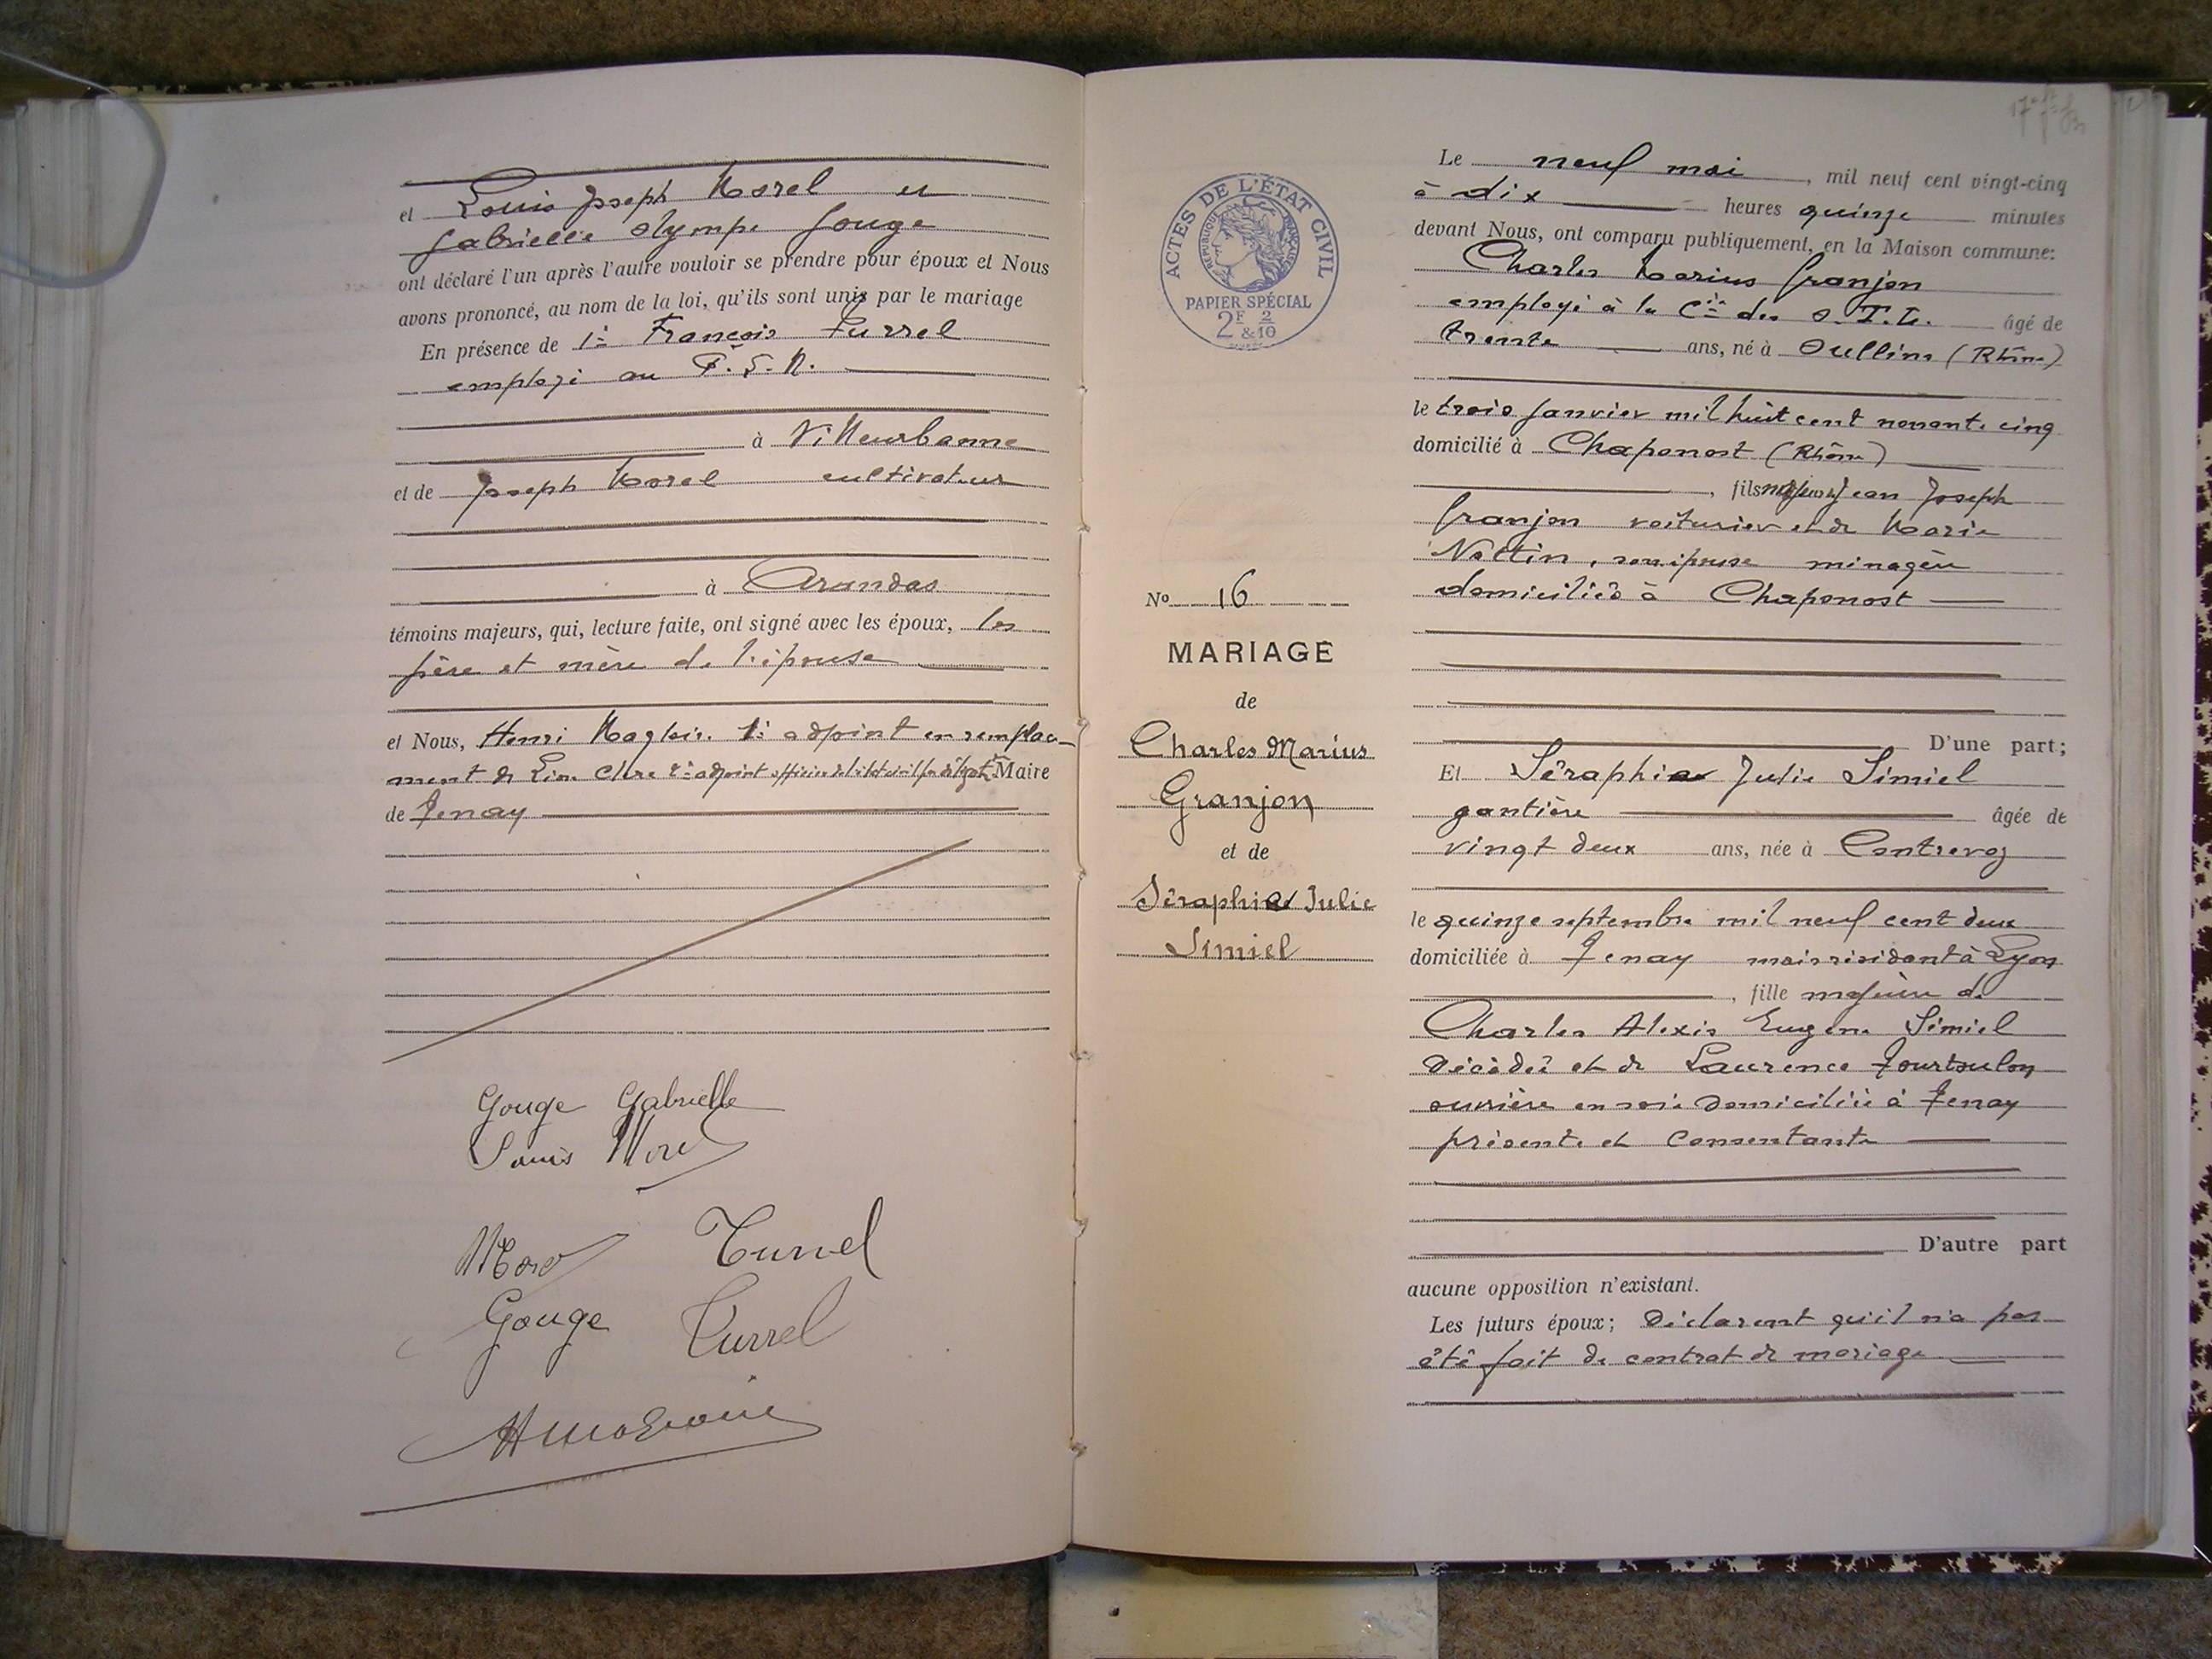 et Louis Joseph Morel et
Gabrielle Olympe Gouge
ont déclaré l'un après l'autre vouloir se prendre pour époux et Nous
avons prononcé, au nom de la loi, qu'ils sont unis par le mariage
En présence de 1º François Turrel
employé au P.L.M.
à Villeurbanne
et de Joseph Morel cultivateur
à Arandas
témoins majeurs, qui, lecture faite, ont signé avec les époux, les
père et mère de l'épouse
et Nous, Henri Magloire 1er adjoint en remplace-
ment de Léon Clerc 2e adjoint officier de l'état civil par délégat. Maire
de Tenay
Gouge Gabrielle
Louis Morel
Morel Turrel
Gouge Turrel
ACTES DE L'ÉTAT CIVIL
RÉPUBLIQUE FRANÇAISE
PAPIER SPÉCIAL
2F 2/10
&
No 16
MARIAGE
de
Charles Marius
Granjon
et de
Séraphie Julie
Simiel
Le neuf mai, mil neuf cent vingt-cinq
à dix heures quinze minutes
devant Nous, ont comparu publiquement, en la Maison commune:
Charles Marius Granjon
employé à la Cie des O.T.L. âgé de
trente ans, né à Oullins (Rhône)
le trois janvier mil huit cent nonante cinq
domicilié à Chaponost (Rhône)
, fils majeur de Jean Joseph
Granjon voiturier et de Marie
Nattin, son épouse ménagère
domiciliés à Chaponost
D'une part;
Et Séraphie Julie Simiel
gantière âgée de
vingt deux ans, née à Contrevoz
le quinze septembre mil neuf cent deux
domiciliée à Tenay mais résidant à Lyon
, fille majeure de
Charles Alexis Eugène Simiel
décédé et de Laurence Tourtoulon
ouvrière en soie domiciliée à Tenay
présente et consentante
D'autre part
aucune opposition n'existant.
Les futurs époux; déclarent qu'il n'a pas
été fait de contrat de mariage